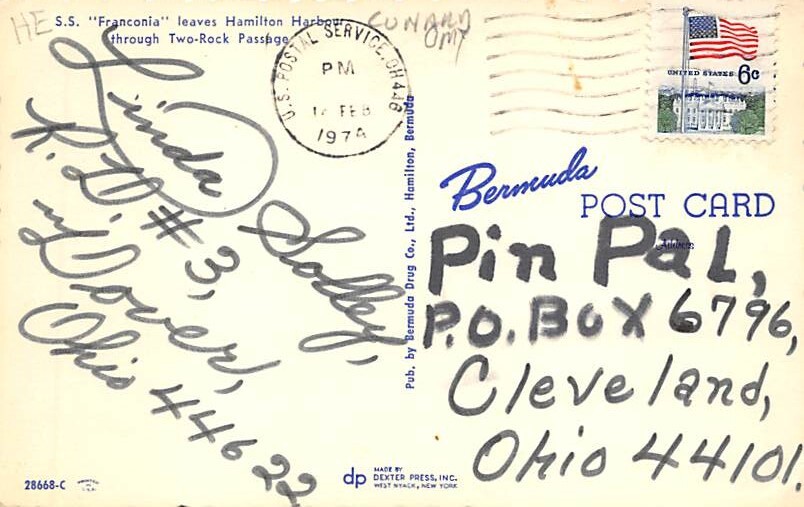 HE
S.S. "Franconia" leaves Hamilton Harbour
through Two-Rock Passage
CUNARD
U.S. POSTAL SERVICE, OH 446
PM
FEB
1974
UNITED STATES 6c
Linda Solley,
R.D. #3,
Dover,
Ohio 44622
Pub. by Bermuda Drug Co., Ltd., Hamilton, Bermuda
Bermuda
POST CARD
Address
Pin Pal,
P.O. Box 6796,
Cleveland,
Ohio 44101.
28668-C
PRINTED
IN
U.S.A.
dp
MADE BY
DEXTER PRESS, INC.
WEST NYACK, NEW YORK